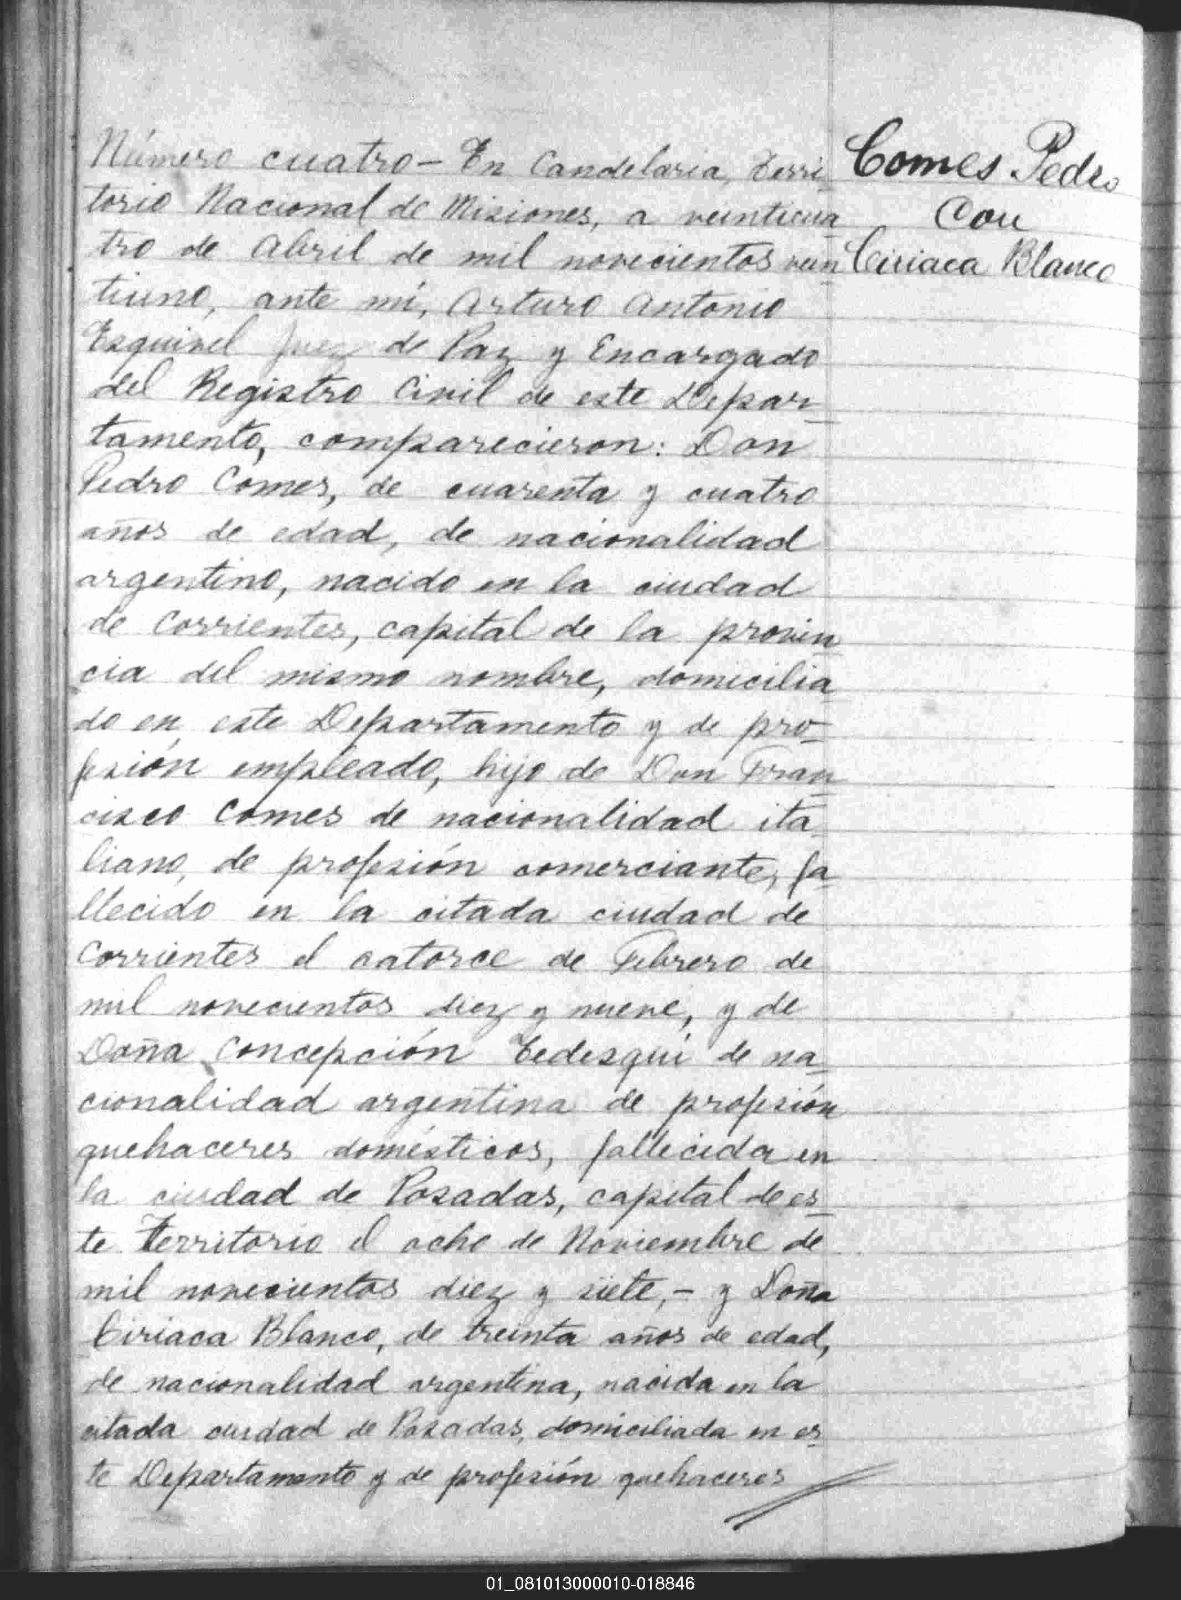 Número cuatro – En Candelaria, Terri-
torio Nacional de Misiones, a veinticua
tro de Abril de mil novecientos vein
tiuno, ante mí, Arturo Antonio
Esquivel Juez de Paz y Encargado
del Registro Civil de este Depar-
tamento, comparecieron: Don
Pedro Comes, de cuarenta y cuatro
años de edad, de nacionalidad
argentino, nacido en la ciudad
de Corrientes, capital de la provin
cia del mismo nombre, domicilia
do en este Departamento y de pro-
fesión empleado, hijo de Don Fran
cisco Comes de nacionalidad ita-
liano, de profesión comerciante, fa-
llecido en la citada ciudad de
Corrientes el catorce de Febrero de
mil novecientos diez y nueve, y de
Doña Concepción Tedesqui de na-
cionalidad argentina de profesión
quehaceres domésticos, fallecida en
la ciudad de Posadas, capital de es-
te Territorio el ocho de Noviembre de
mil novecientos diez y siete, – y Doña
Ciriaca Blanco, de treinta años de edad,
de nacionalidad argentina, nacida en la
citada ciudad de Posadas, domiciliada en es-
te Departamento y de profesión quehaceres
Comes Pedro
Con
Ciriaca Blanco
01_081013000010-018846